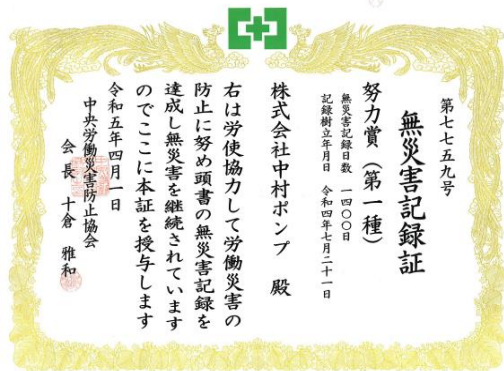 第七七五九号
無災害記録証
努力賞（第一種）
無災害記録日数　一四〇〇日
記録樹立年月日　令和四年七月二十一日
株式会社中村ポンプ　殿
右は労使協力して労働災害の
防止に努め頭書の無災害記録を
達成し無災害を継続されています
のでここに本証を授与します
令和五年四月一日
中央労働災害防止協会
会長　十倉　雅和